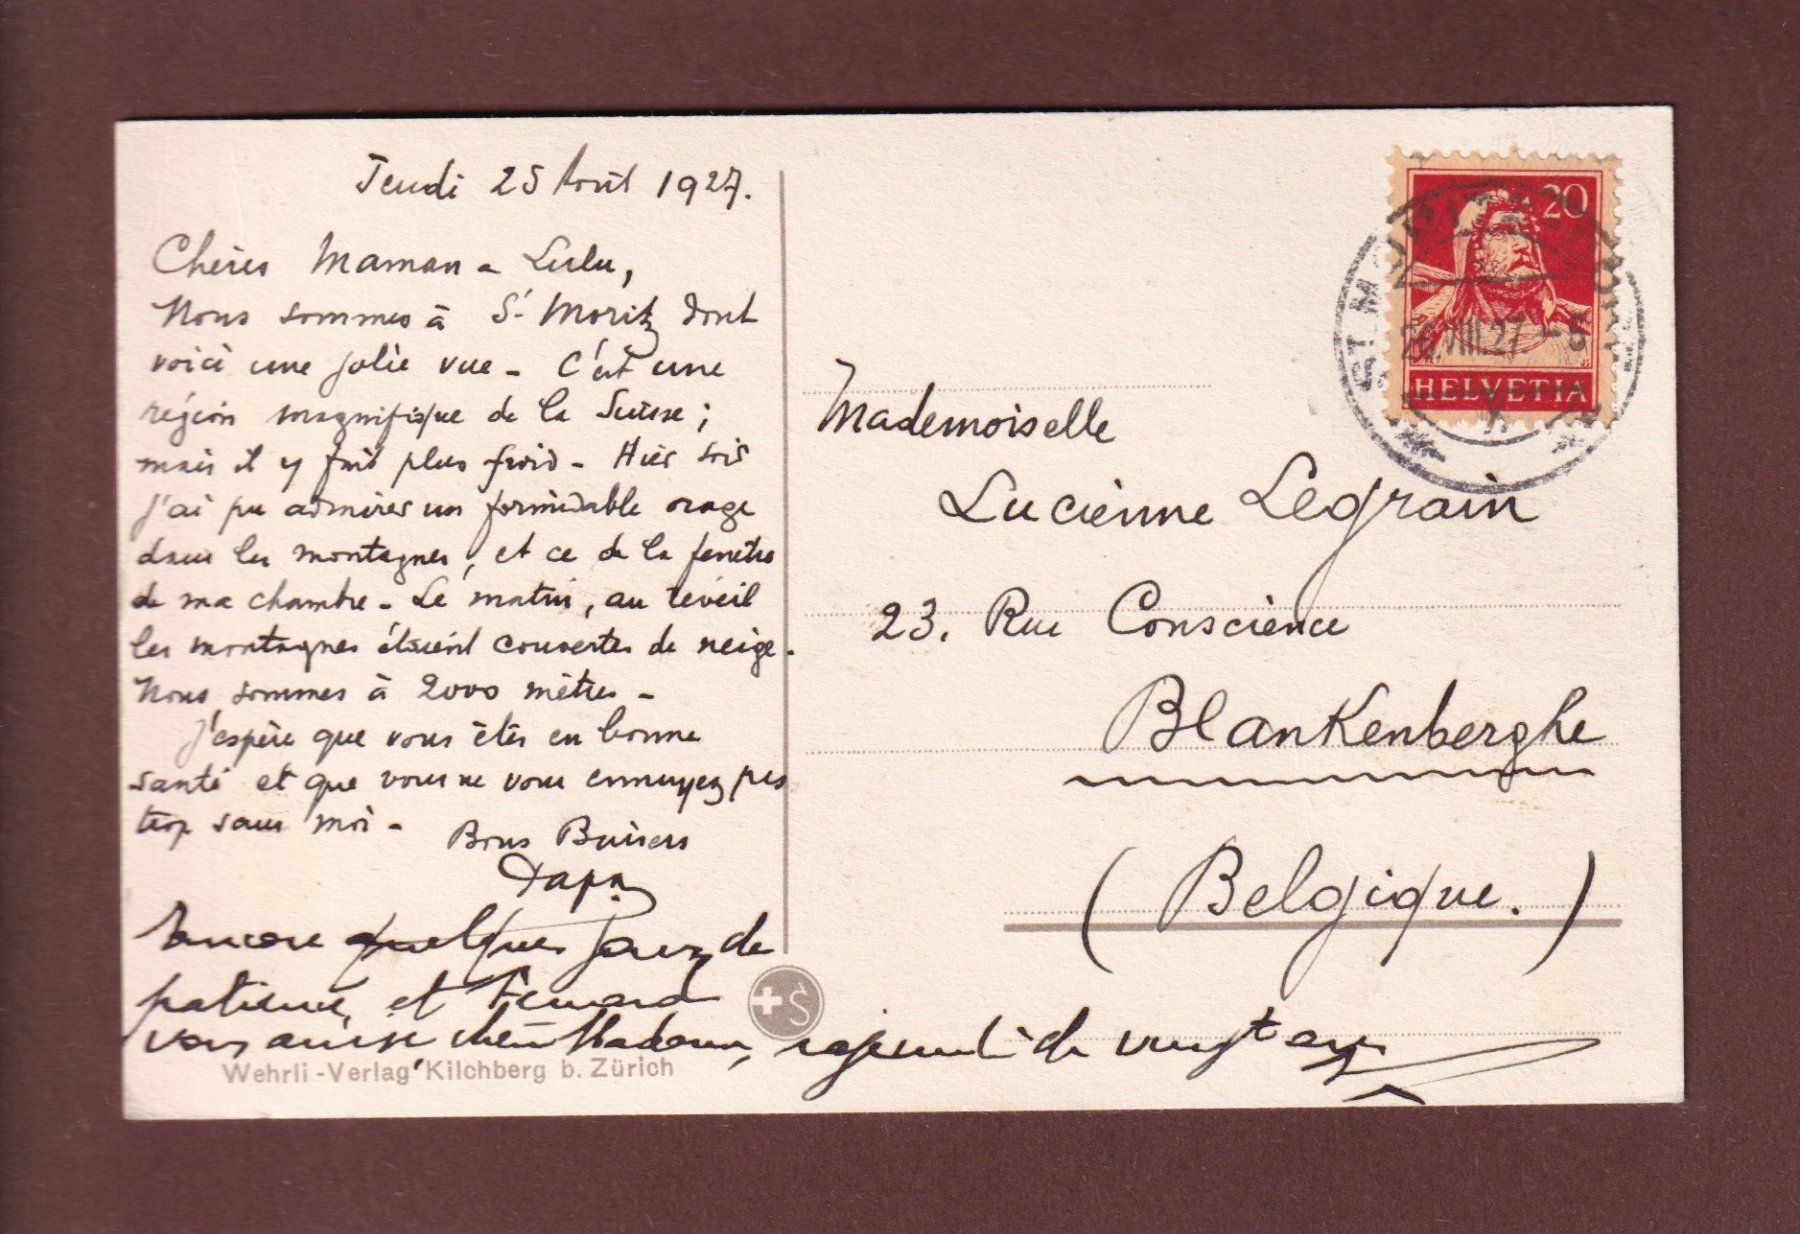 Jeudi 25 Août 1927.
Chères Maman & Lulu,
Nous sommes à St Moritz dont
voici une jolie vue - C'est une
région magnifique de la Suisse ;
mais il y fait plus froid - Hier soir
j'ai pu admirer un formidable orage
dans les montagnes, et ce de la fenêtre
de ma chambre - Le matin, au réveil
les montagnes étaient couvertes de neige -
Nous sommes à 2000 mètres -
J'espère que vous êtes en bonne
santé et que vous ne vous ennuyez pas
trop sans moi -
Bons Baisers
Encore quelques jours de
patience, et
vous arrive chère Madame, rajeuni de vingt ans
Wehrli-Verlag Kilchberg b. Zürich
+S
20
HELVETIA
ST. MORITZ
26.VIII.27.-5
Mademoiselle
Lucienne Legrain
23, Rue Conscience
Blankenberghe
(Belgique.)